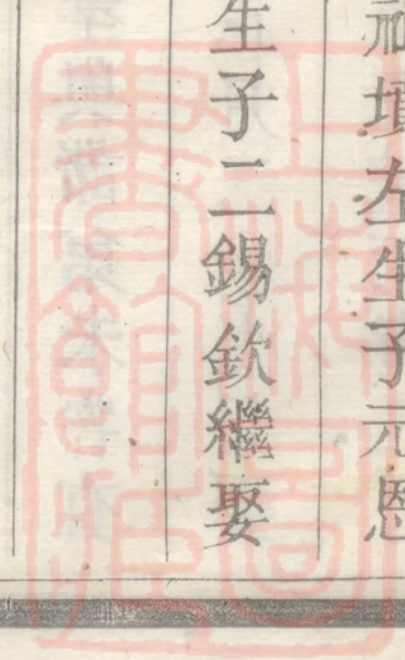 祖墳左生子元恩
生子二錫欽繼娶